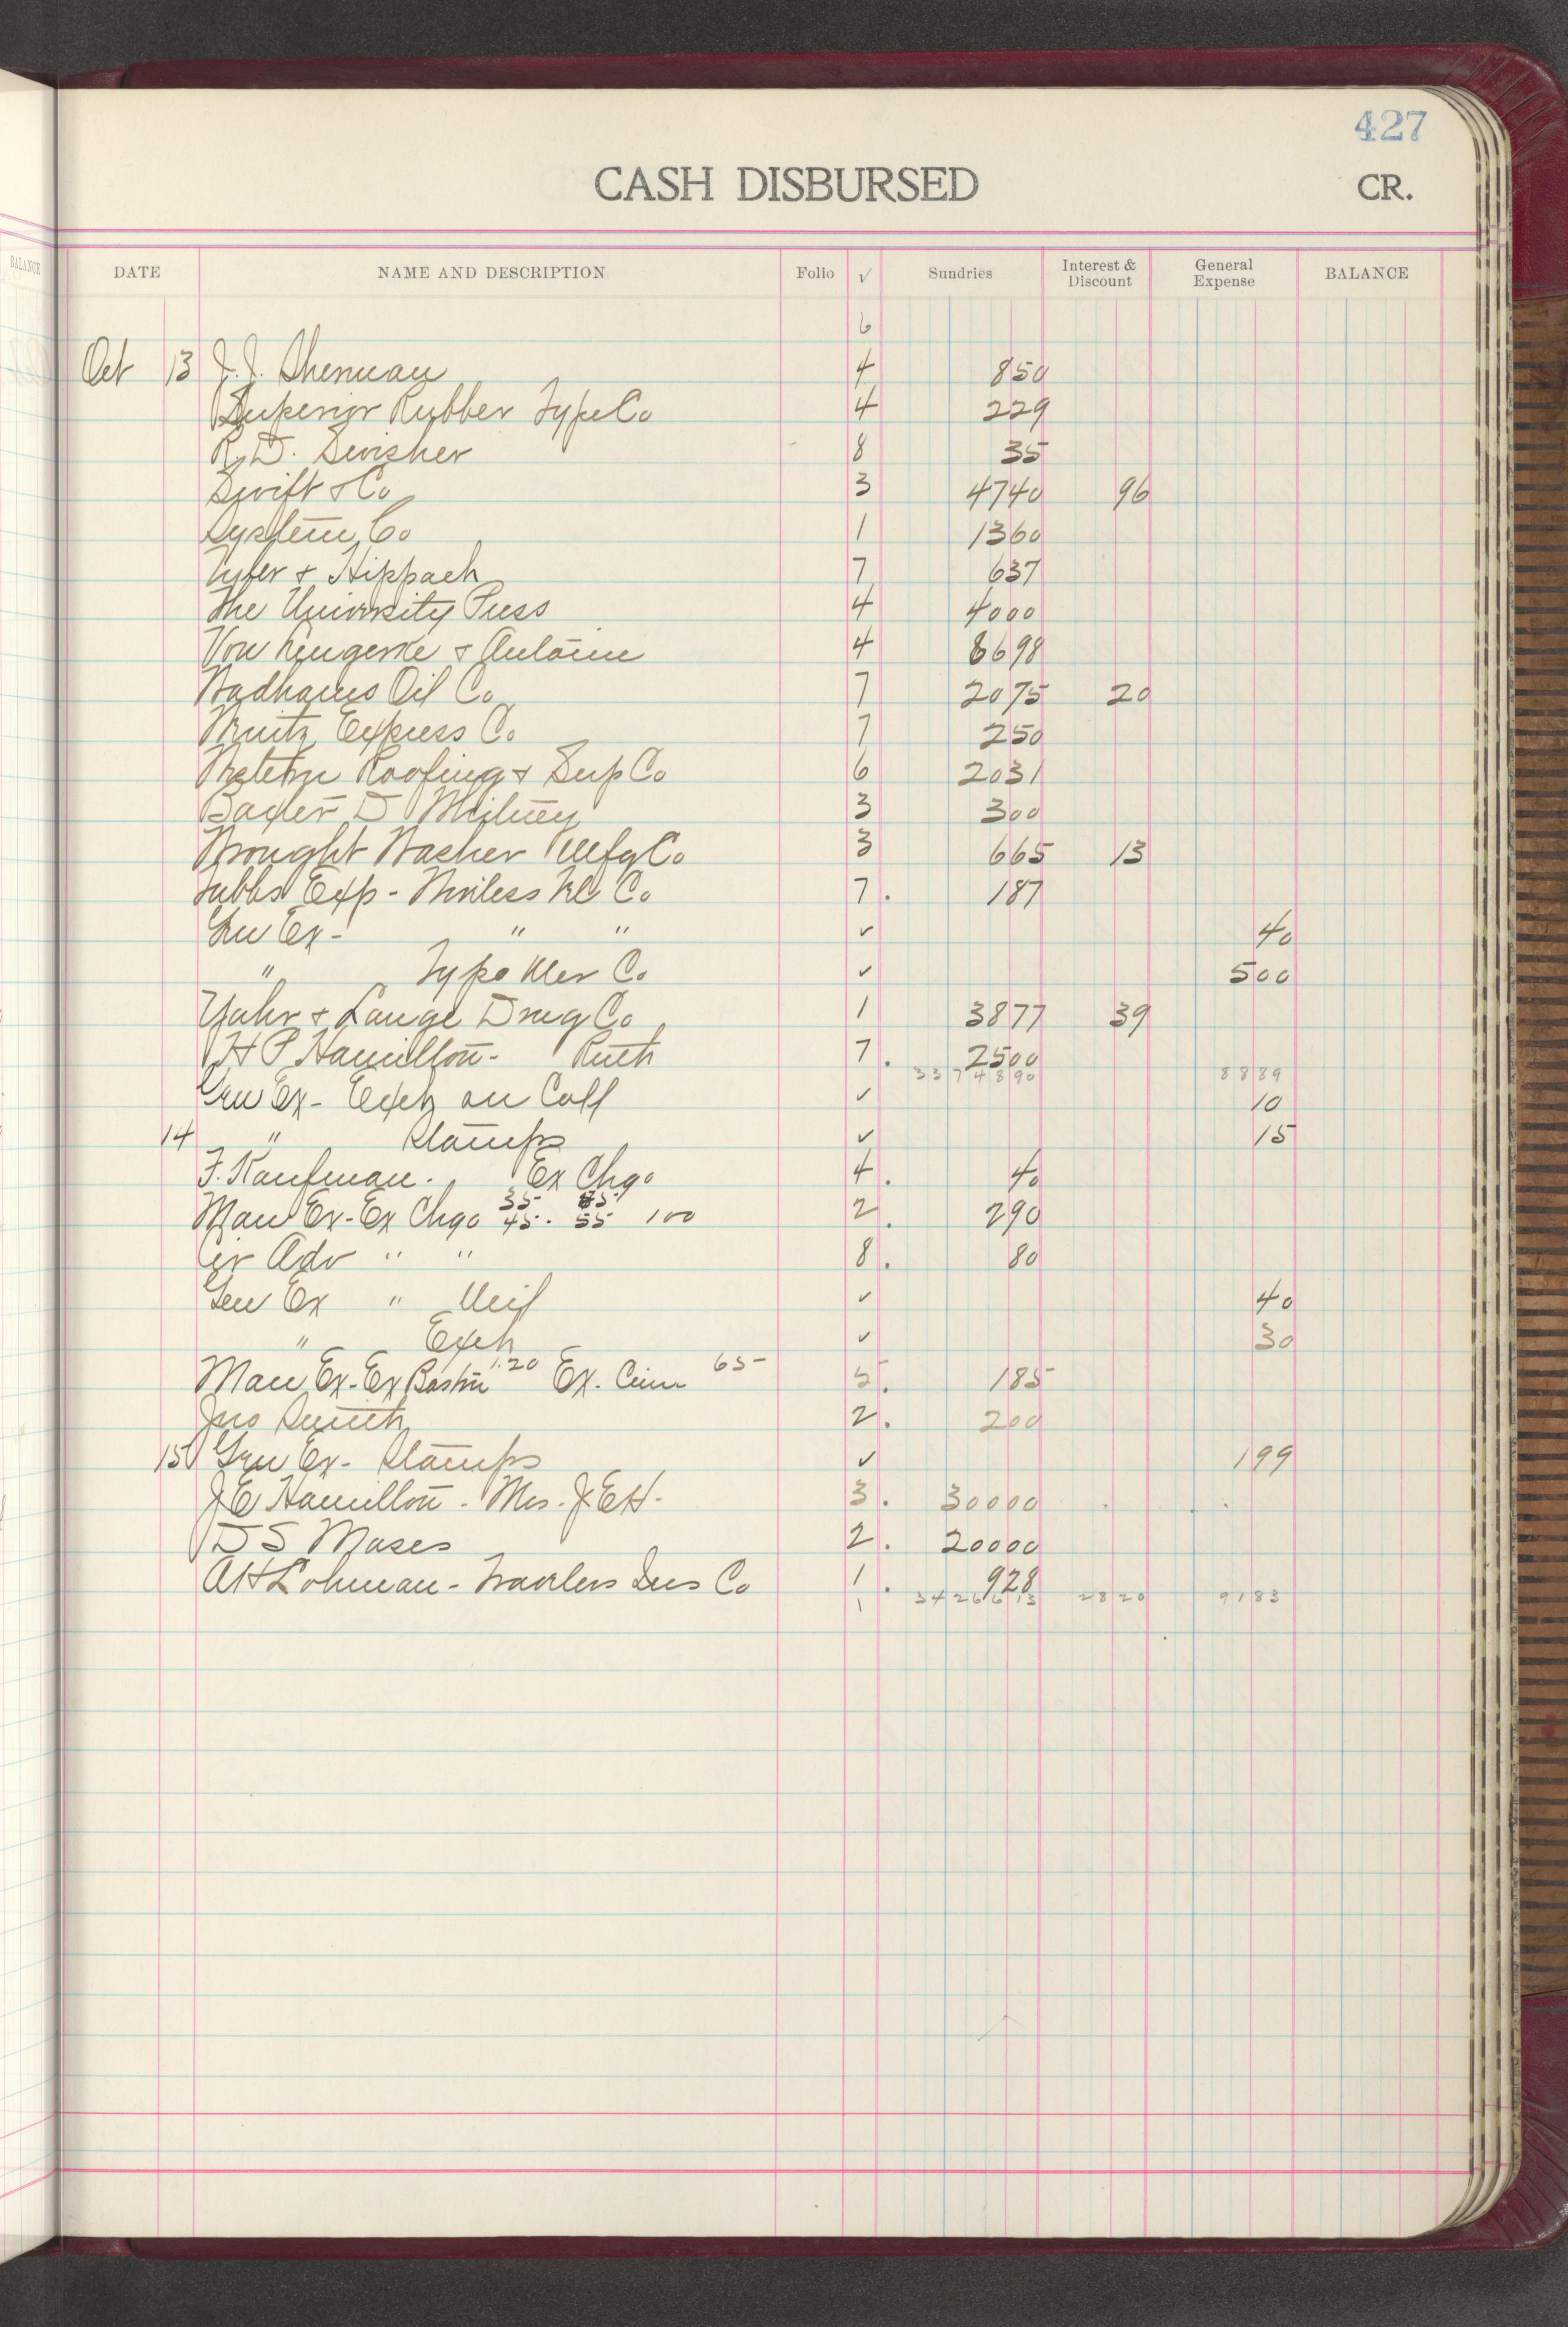 BALANCE
427
CASH DISBURSED CR.
DATE NAME AND DESCRIPTION Folio √ Sundries Interest & Discount General Expense BALANCE
6
Oct 13 J. J. Sherman 4 850
Superior Rubber Type Co 4 229
R. D. Swisher 8 35
Swift & Co 3 4740 96
System Co 1 1360
Tyler & Hippach 7 637
The University Press 4 4000
Von Lengerke & Antoine 4 8698
Wadhams Oil Co 7 2075 20
Express Co 7 250
Western Roofing & Sup Co 6 2031
Baxter D Whitney 3 300
Wrought Washer Mfg Co 3 665 13
Tubbs Exp - Co 7 . 187
Gen Ex - " " ✓ 40
" Typo Mer Co ✓ 500
Yahr & Lange Drug Co 1 3877 39
H P Hamilton - Ruth 7 . 2500
3374890 8889
Gen Ex - Exch on Coll ✓ 10
14 " Stamps ✓ 15
F. Kaufman. Ex Chgo 4 . 40
35 85
Man Ex - Ex Chgo 45. 55 100 2 . 290
Cir Adv " " 8 . 80
Gen Ex " ✓ 40
" Exch ✓ 30
Man Ex - Ex Boston 1.20 Ex. Cinn 65 5 . 185
Jno Smith 2 . 200
15 Gen Ex - Stamps ✓ 199
J E Hamilton - Mrs. J E H - 3 . 30000
D S Moses 2 . 20000
A H Lohman - Travlers Ins Co 1 . 928
1 3426613 2820 9183